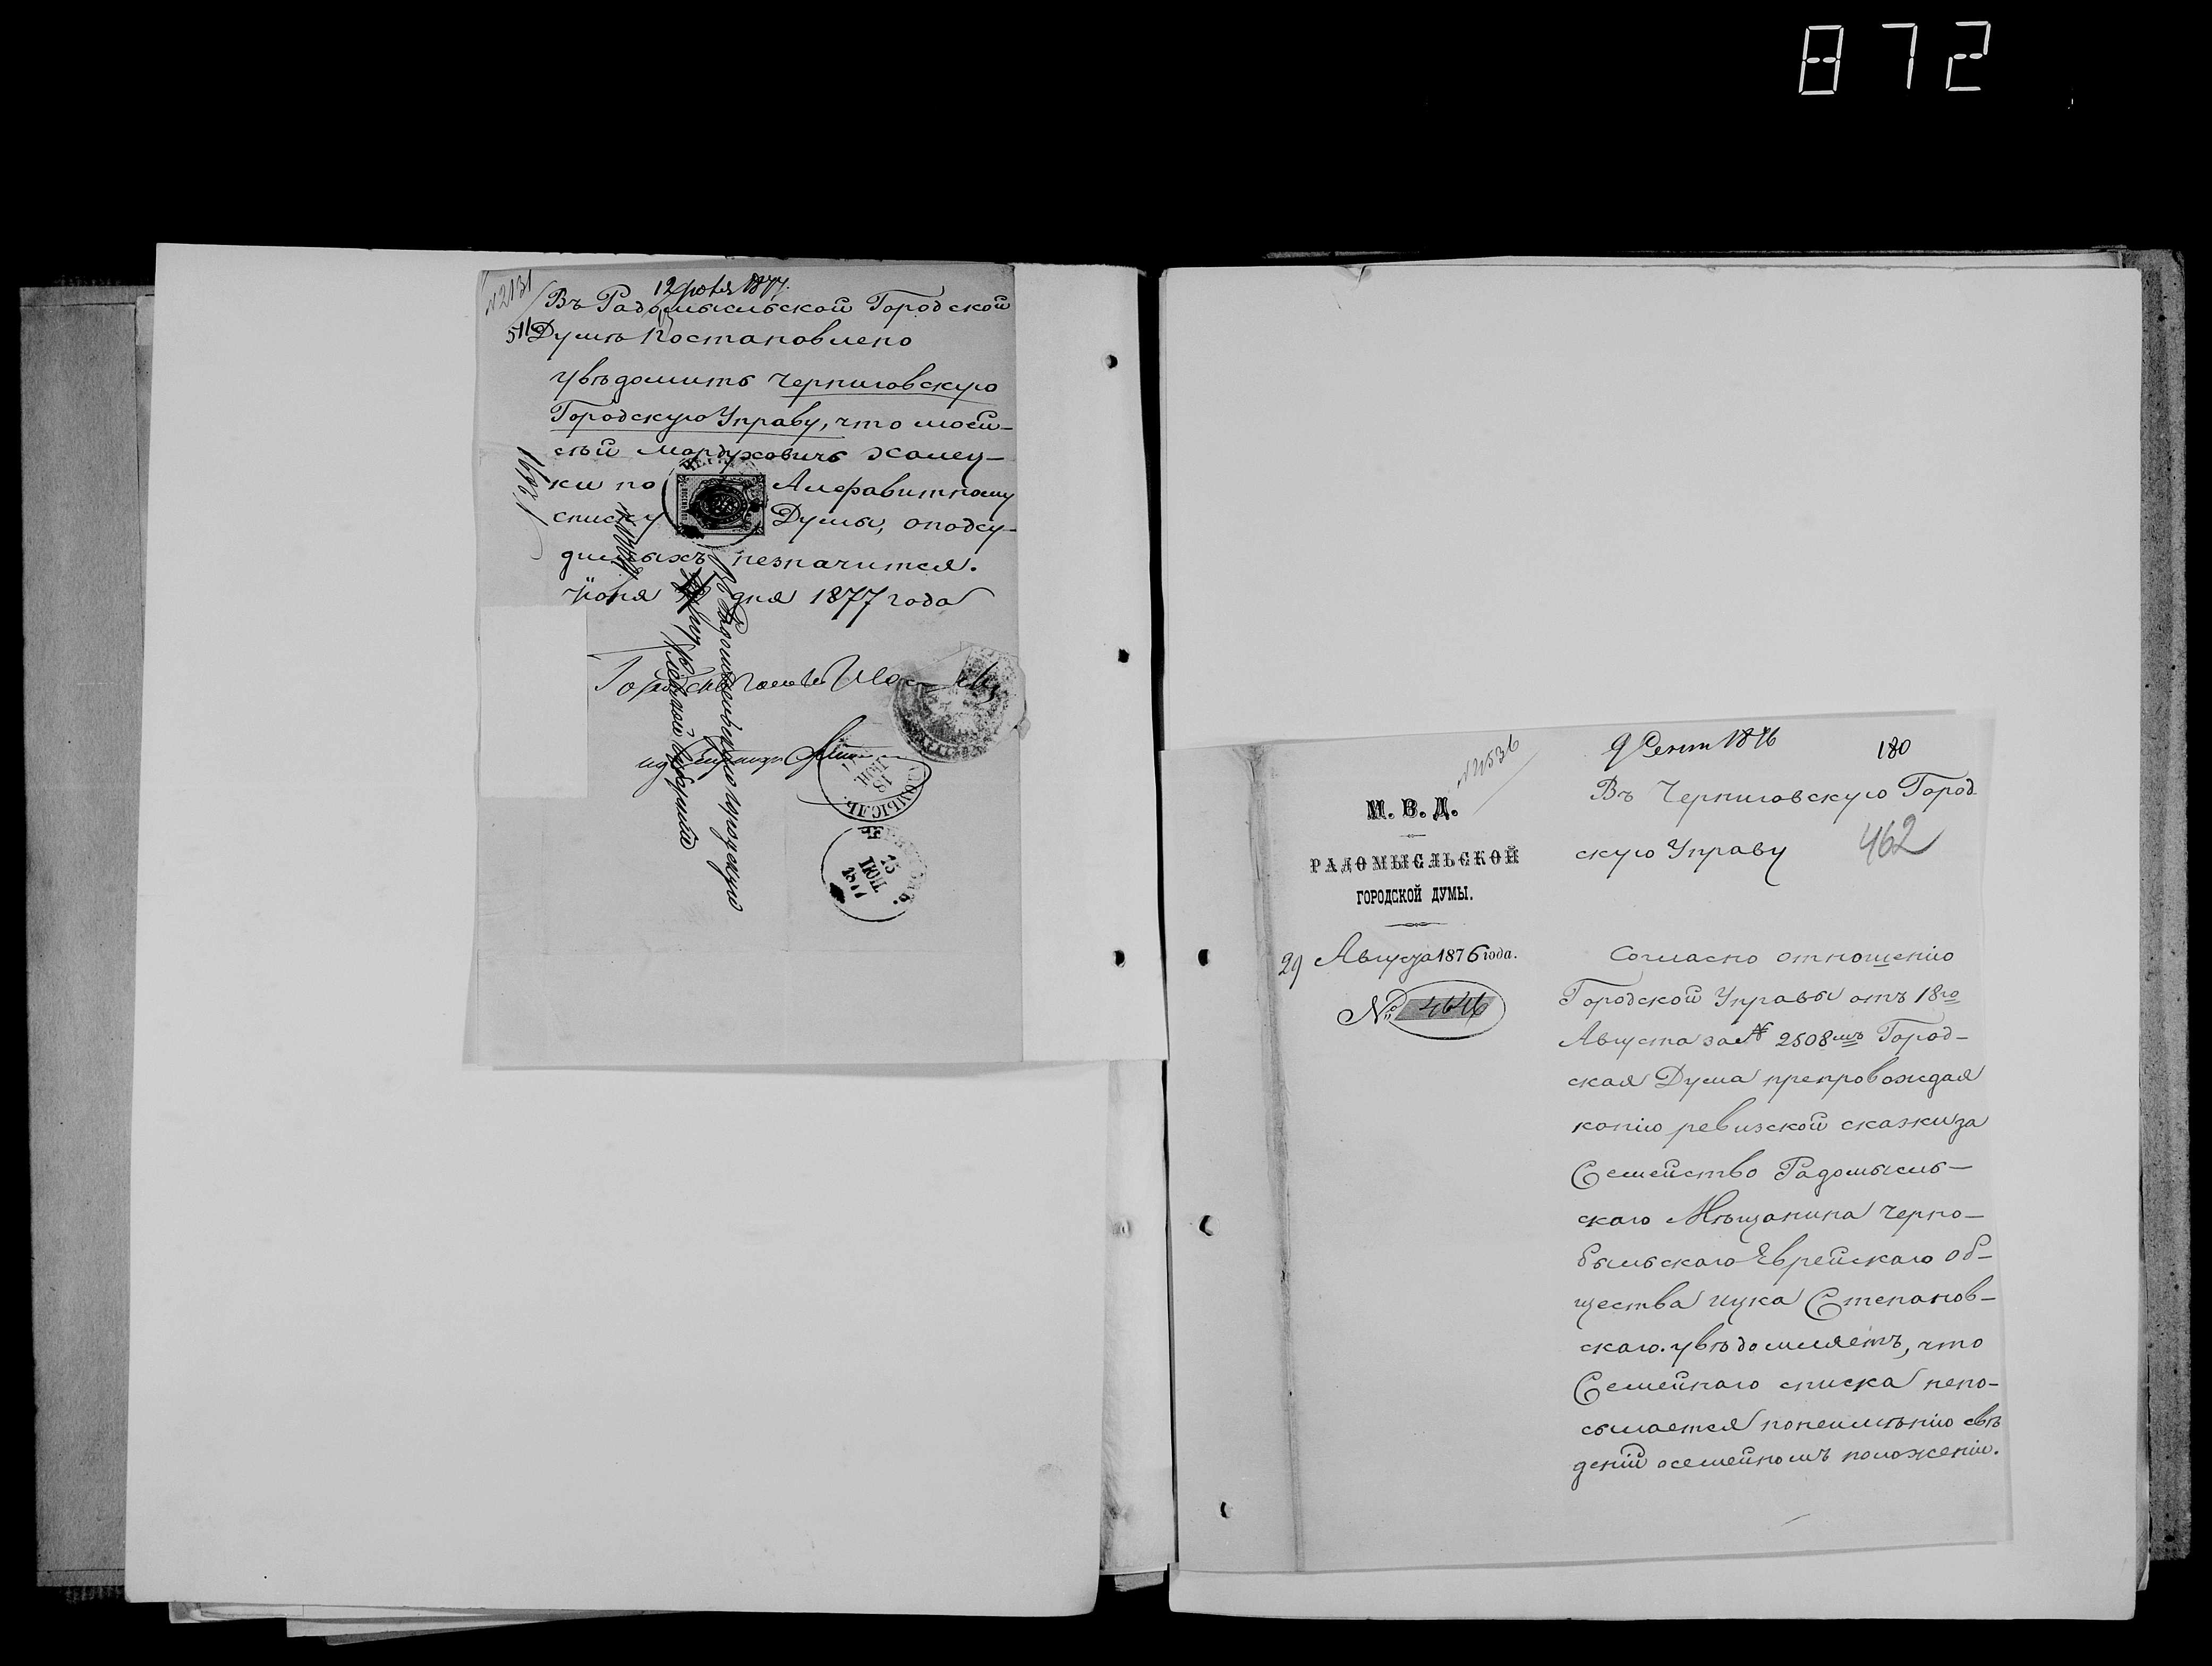 872
№2131
12 Июня 1877.
Въ Радомысльской Городской
511 Думѣ Постановлено
увѣдомить Черниговскую
Городскую Управу, что Мовш-
ей Мордуховичъ Хомец-
ки по Алфавитному
списку Думы, оподсу-
димыхъ незначится.
Июня дня 1877 года
Городской голова
РАДОМЫСЛЬ.
18
ІЮН.
13
ІЮН.
1877
№ 11536
9 Сент 1876
180
М. В. Д.
РАДОМЫСЛЬСКОЙ
ГОРОДСКОЙ ДУМЫ.
29 Августа 1876 года.
№ 4646
Въ Черниговскую Город
скую Управу
462
Согласно отношенію
Городской Управы отъ 18го
Августа за № 2508мъ Город-
ская Дума препровождая
копію ревизской сказки за
Семейство Радомысль-
скаго Мѣщанина Черно-
быльскаго Еврейскаго об-
щества Ицка Степанов-
скаго. увѣдомляетъ, что
Семейнаго списка непо-
сылается понеимѣнію свѣ
деній осемейномъ положеніи.